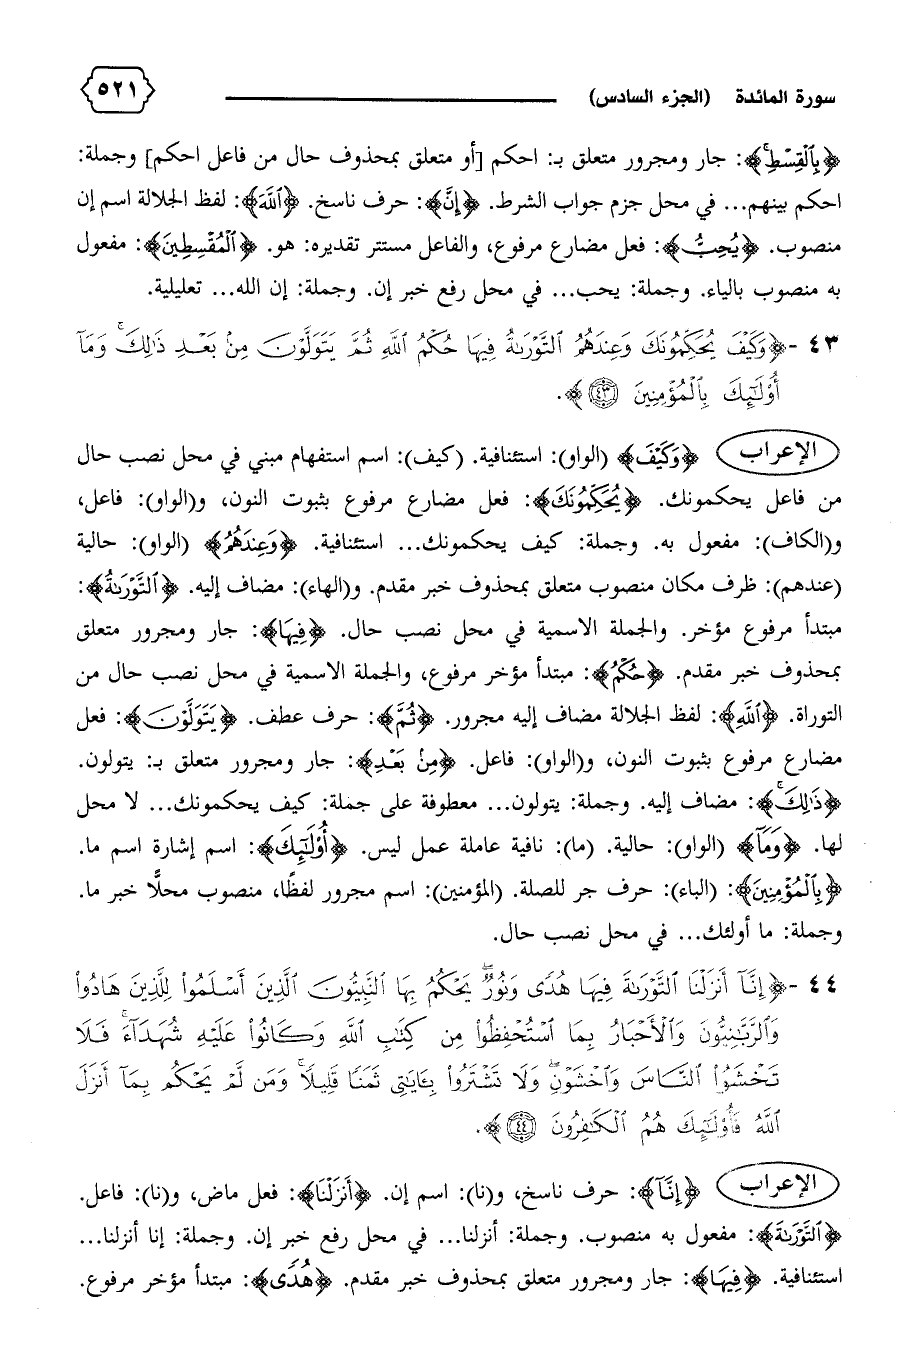 سورة المائدة (الجزء السادس) ٥٢١
﴿بِٱلْقِسْطِ﴾: جار ومجرور متعلق بـ: احكم [أو متعلق بمحذوف حال من فاعل احكم] وجملة:
احكم بينهم... في محل جزم جواب الشرط. ﴿إِنَّ﴾: حرف ناسخ. ﴿ٱللَّهَ﴾: لفظ الجلالة اسم إن
منصوب. ﴿يُحِبُّ﴾: فعل مضارع مرفوع، والفاعل مستتر تقديره: هو. ﴿ٱلْمُقْسِطِينَ﴾: مفعول
به منصوب بالياء. وجملة: يحب... في محل رفع خبر إن. وجملة: إن الله... تعليلية.
٤٣ -﴿وَكَيْفَ يُحَكِّمُونَكَ وَعِندَهُمُ ٱلتَّوْرَىٰةُ فِيهَا حُكْمُ ٱللَّهِ ثُمَّ يَتَوَلَّوْنَ مِنۢ بَعْدِ ذَٰلِكَ ۚ وَمَآ
أُو۟لَٰٓئِكَ بِٱلْمُؤْمِنِينَ ٤٣﴾.
الإعراب ﴿وَكَيْفَ﴾ (الواو): استئنافية. (كيف): اسم استفهام مبني في محل نصب حال
من فاعل يحكمونك. ﴿يُحَكِّمُونَكَ﴾: فعل مضارع مرفوع بثبوت النون، و(الواو): فاعل،
و(الكاف): مفعول به. وجملة: كيف يحكمونك... استئنافية. ﴿وَعِندَهُمُ﴾ (الواو): حالية
(عندهم): ظرف مكان منصوب متعلق بمحذوف خبر مقدم. و(الهاء): مضاف إليه. ﴿ٱلتَّوْرَىٰةُ﴾:
مبتدأ مرفوع مؤخر. والجملة الاسمية في محل نصب حال. ﴿فِيهَا﴾: جار ومجرور متعلق
بمحذوف خبر مقدم. ﴿حُكْمُ﴾: مبتدأ مؤخر مرفوع، والجملة الاسمية في محل نصب حال من
التوراة. ﴿ٱللَّهِ﴾: لفظ الجلالة مضاف إليه مجرور. ﴿ثُمَّ﴾: حرف عطف. ﴿يَتَوَلَّوْنَ﴾: فعل
مضارع مرفوع بثبوت النون، و(الواو): فاعل. ﴿مِنۢ بَعْدِ﴾: جار ومجرور متعلق بـ: يتولون.
﴿ذَٰلِكَ ۚ﴾: مضاف إليه. وجملة: يتولون... معطوفة على جملة: كيف يحكمونك... لا محل
لها. ﴿وَمَآ﴾ (الواو): حالية. (ما): نافية عاملة عمل ليس. ﴿أُو۟لَٰٓئِكَ﴾: اسم إشارة اسم ما.
﴿بِٱلْمُؤْمِنِينَ﴾: (الباء): حرف جر للصلة. (المؤمنين): اسم مجرور لفظًا، منصوب محلًّا خبر ما.
وجملة: ما أولئك... في محل نصب حال.
٤٤ -﴿إِنَّآ أَنزَلْنَا ٱلتَّوْرَىٰةَ فِيهَا هُدًى وَنُورٌ ۚ يَحْكُمُ بِهَا ٱلنَّبِيُّونَ ٱلَّذِينَ أَسْلَمُوا۟ لِلَّذِينَ هَادُوا۟
وَٱلرَّبَّٰنِيُّونَ وَٱلْأَحْبَارُ بِمَا ٱسْتُحْفِظُوا۟ مِن كِتَٰبِ ٱللَّهِ وَكَانُوا۟ عَلَيْهِ شُهَدَآءَ ۚ فَلَا
تَخْشَوُا۟ ٱلنَّاسَ وَٱخْشَوْنِ وَلَا تَشْتَرُوا۟ بِـَٔايَٰتِى ثَمَنًا قَلِيلًا ۚ وَمَن لَّمْ يَحْكُم بِمَآ أَنزَلَ
ٱللَّهُ فَأُو۟لَٰٓئِكَ هُمُ ٱلْكَٰفِرُونَ ٤٤﴾.
الإعراب ﴿إِنَّآ﴾: حرف ناسخ، و(نا): اسم إن. ﴿أَنزَلْنَا﴾: فعل ماض، و(نا): فاعل.
﴿ٱلتَّوْرَىٰةَ﴾: مفعول به منصوب. وجملة: أنزلنا... في محل رفع خبر إن. وجملة: إنا أنزلنا...
استئنافية. ﴿فِيهَا﴾: جار ومجرور متعلق بمحذوف خبر مقدم. ﴿هُدًى﴾: مبتدأ مؤخر مرفوع.